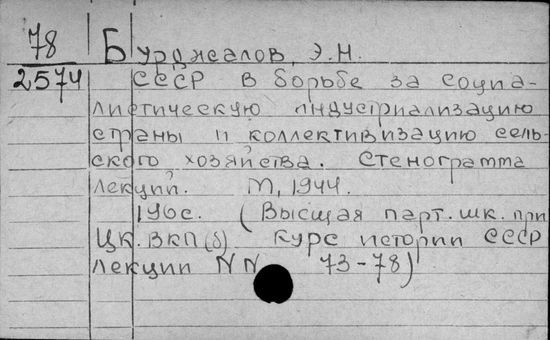 78 Бурджалов, Э.Н.
2574 СССР в борьбе за социа-
листическую индустриализацию
страны и коллективизацию сель-
ского хозяйства. Стенограмма
лекций. М, 1944.
196с. (Высшая парт.шк. при
ЦК.ВКП(б) курс истории СССР
лекции NN 73-78)